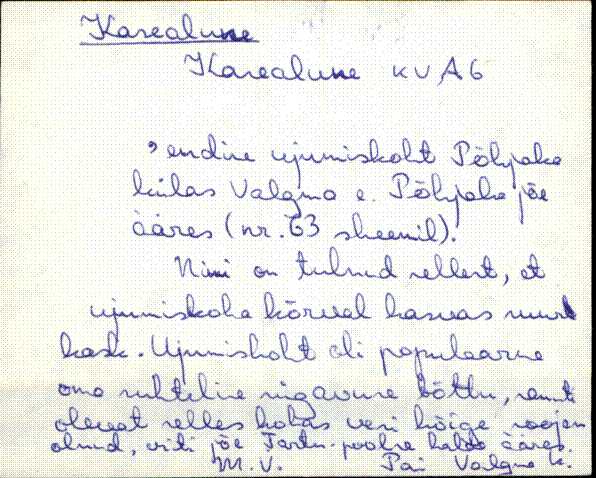 Kasealune
Kasealune KV, A6
, endine ujumiskoht Põhjaka
külas Valgma e. Põhjaka jõe
ääres (nr. 63 skeemil).
Nimi on tulnud sellest, et
ujumiskoha kõrval kasvas suur
kask. Ujumiskoht oli populaarne
oma suhtelise sügavuse tõttu, samuti
olevat selles kohas vesi kõige soojem
olnud, viti jõe Tartu-poolse kalda ääres.
M. V. Pai Valgma k.